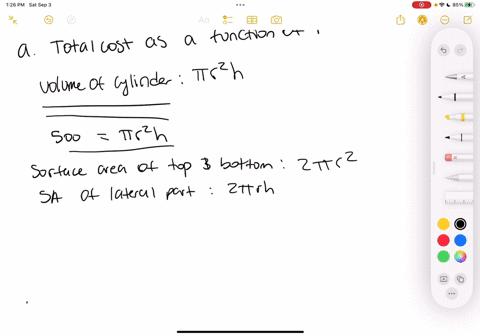 7:26 PM Sat Sep 3
85%
a. Total cost as a function of r
volume of cylinder : πr²h
500 = πr²h
Surface area of top & bottom : 2πr²
SA of lateral part : 2πrh